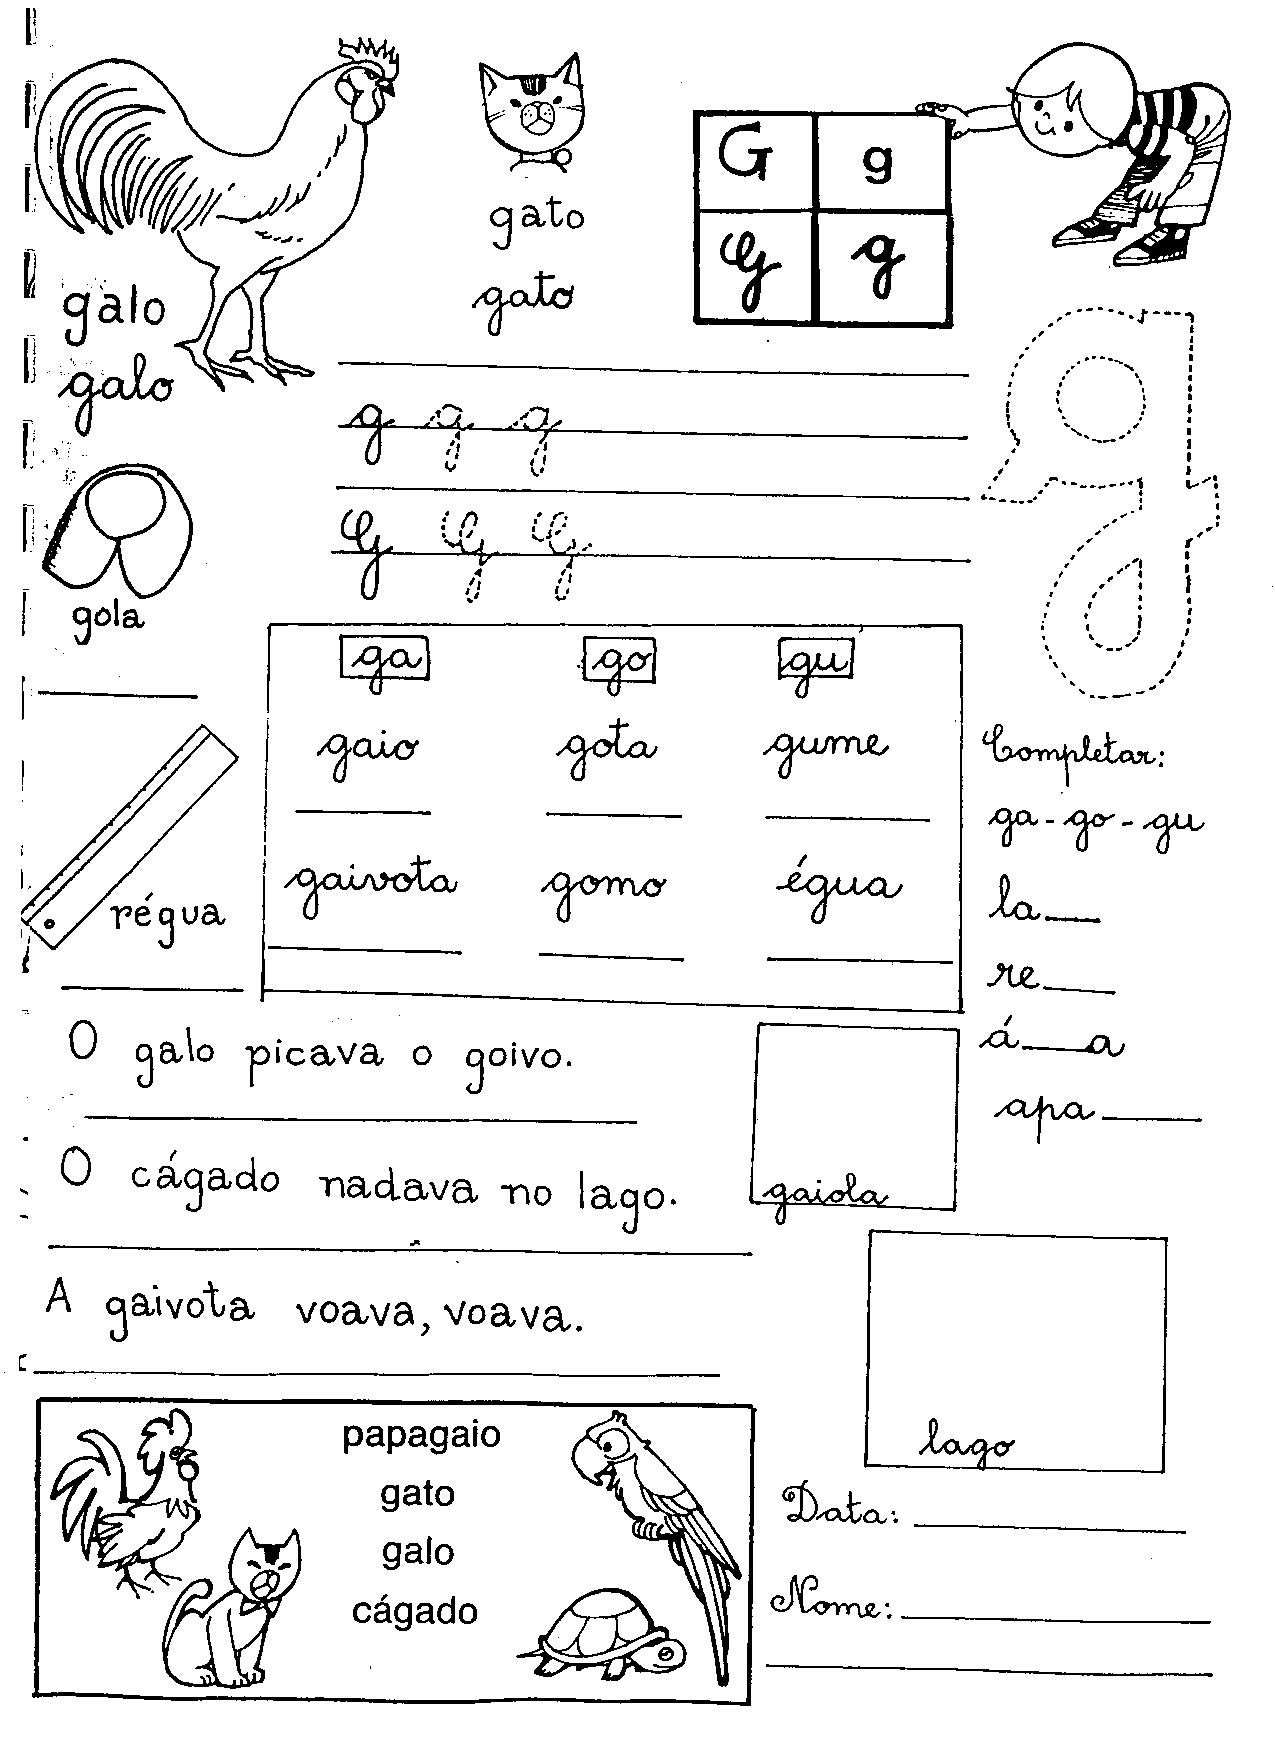 gato
gato
G g
G g
galo
galo
g g g
G G G
gola
ga go gu
gaio gota gume
gaivota gomo égua
régua
Completar:
ga - go - gu
la___
re___
á___a
apa___
O galo picava o goivo.
O cágado nadava no lago.
A gaivota voava, voava.
gaiola
lago
papagaio
gato
galo
cágado
Data:
Nome: